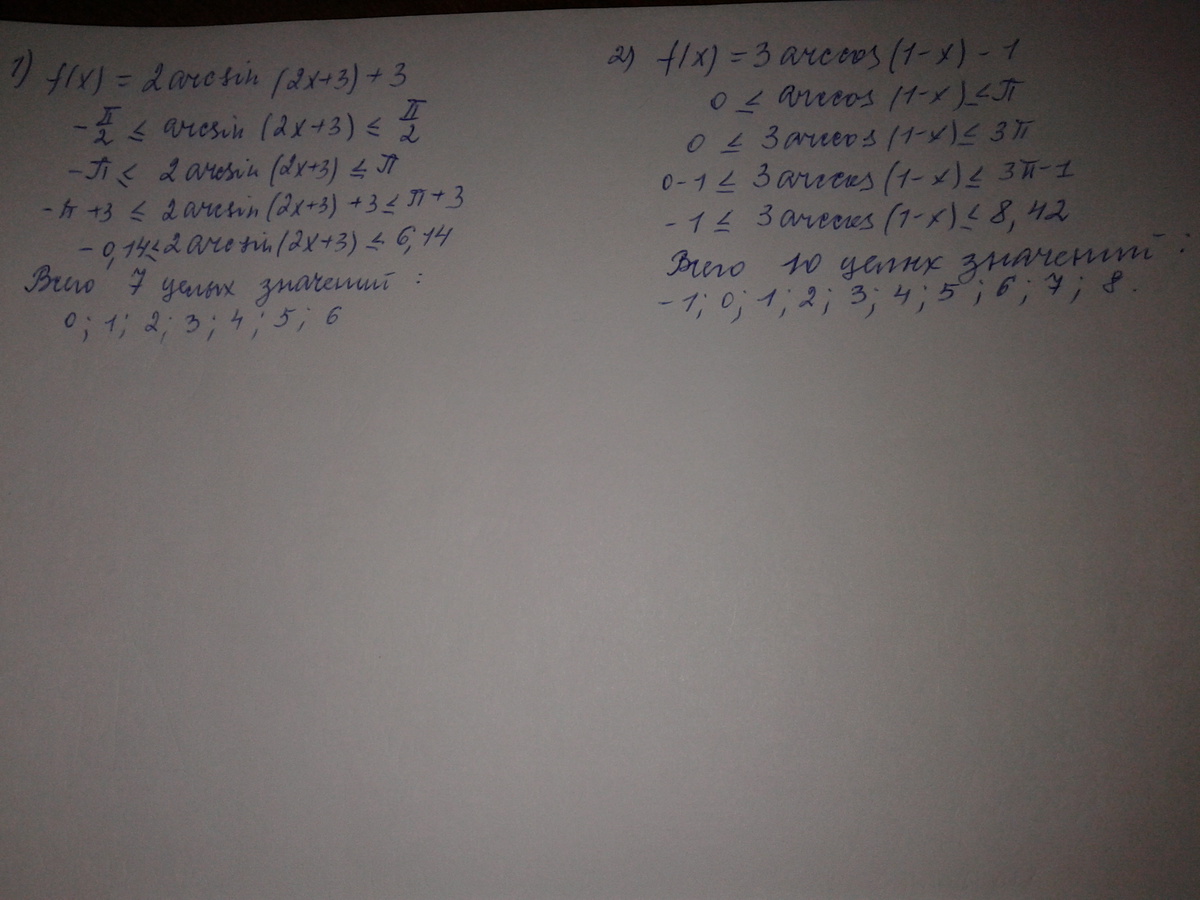 1) f(x) = 2 arcsin (2x+3) + 3
-π/2 ≤ arcsin (2x+3) ≤ π/2
-π ≤ 2 arcsin (2x+3) ≤ π
-π + 3 ≤ 2 arcsin (2x+3) + 3 ≤ π + 3
-0,14 ≤ 2 arcsin (2x+3) ≤ 6,14
Всего 7 целых значений :
0; 1; 2; 3; 4; 5; 6
2) f(x) = 3 arccos (1-x) - 1
0 ≤ arccos (1-x) ≤ π
0 ≤ 3 arccos (1-x) ≤ 3π
0-1 ≤ 3 arccos (1-x) ≤ 3π-1
-1 ≤ 3 arccos (1-x) ≤ 8,42
Всего 10 целых значений :
-1; 0; 1; 2; 3; 4; 5; 6; 7; 8.